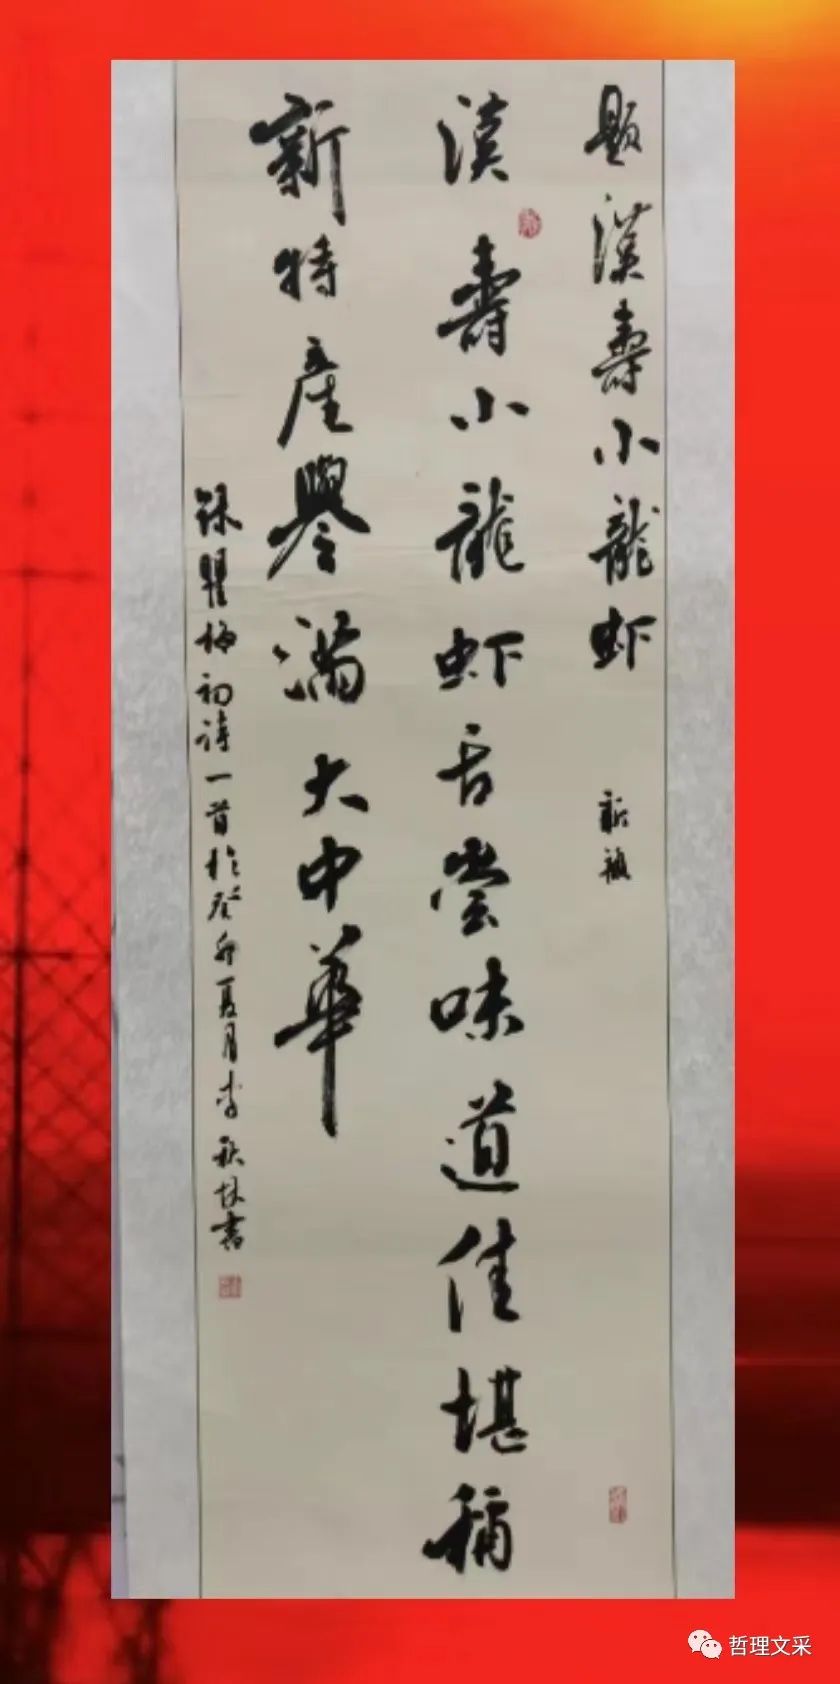 题漢壽小龍虾 新韻
漢壽小龍虾舌尝味道佳堪稱
新特産譽满大中華
錄瞿梅初詩一首於癸卯夏月李秋林書
哲理文采